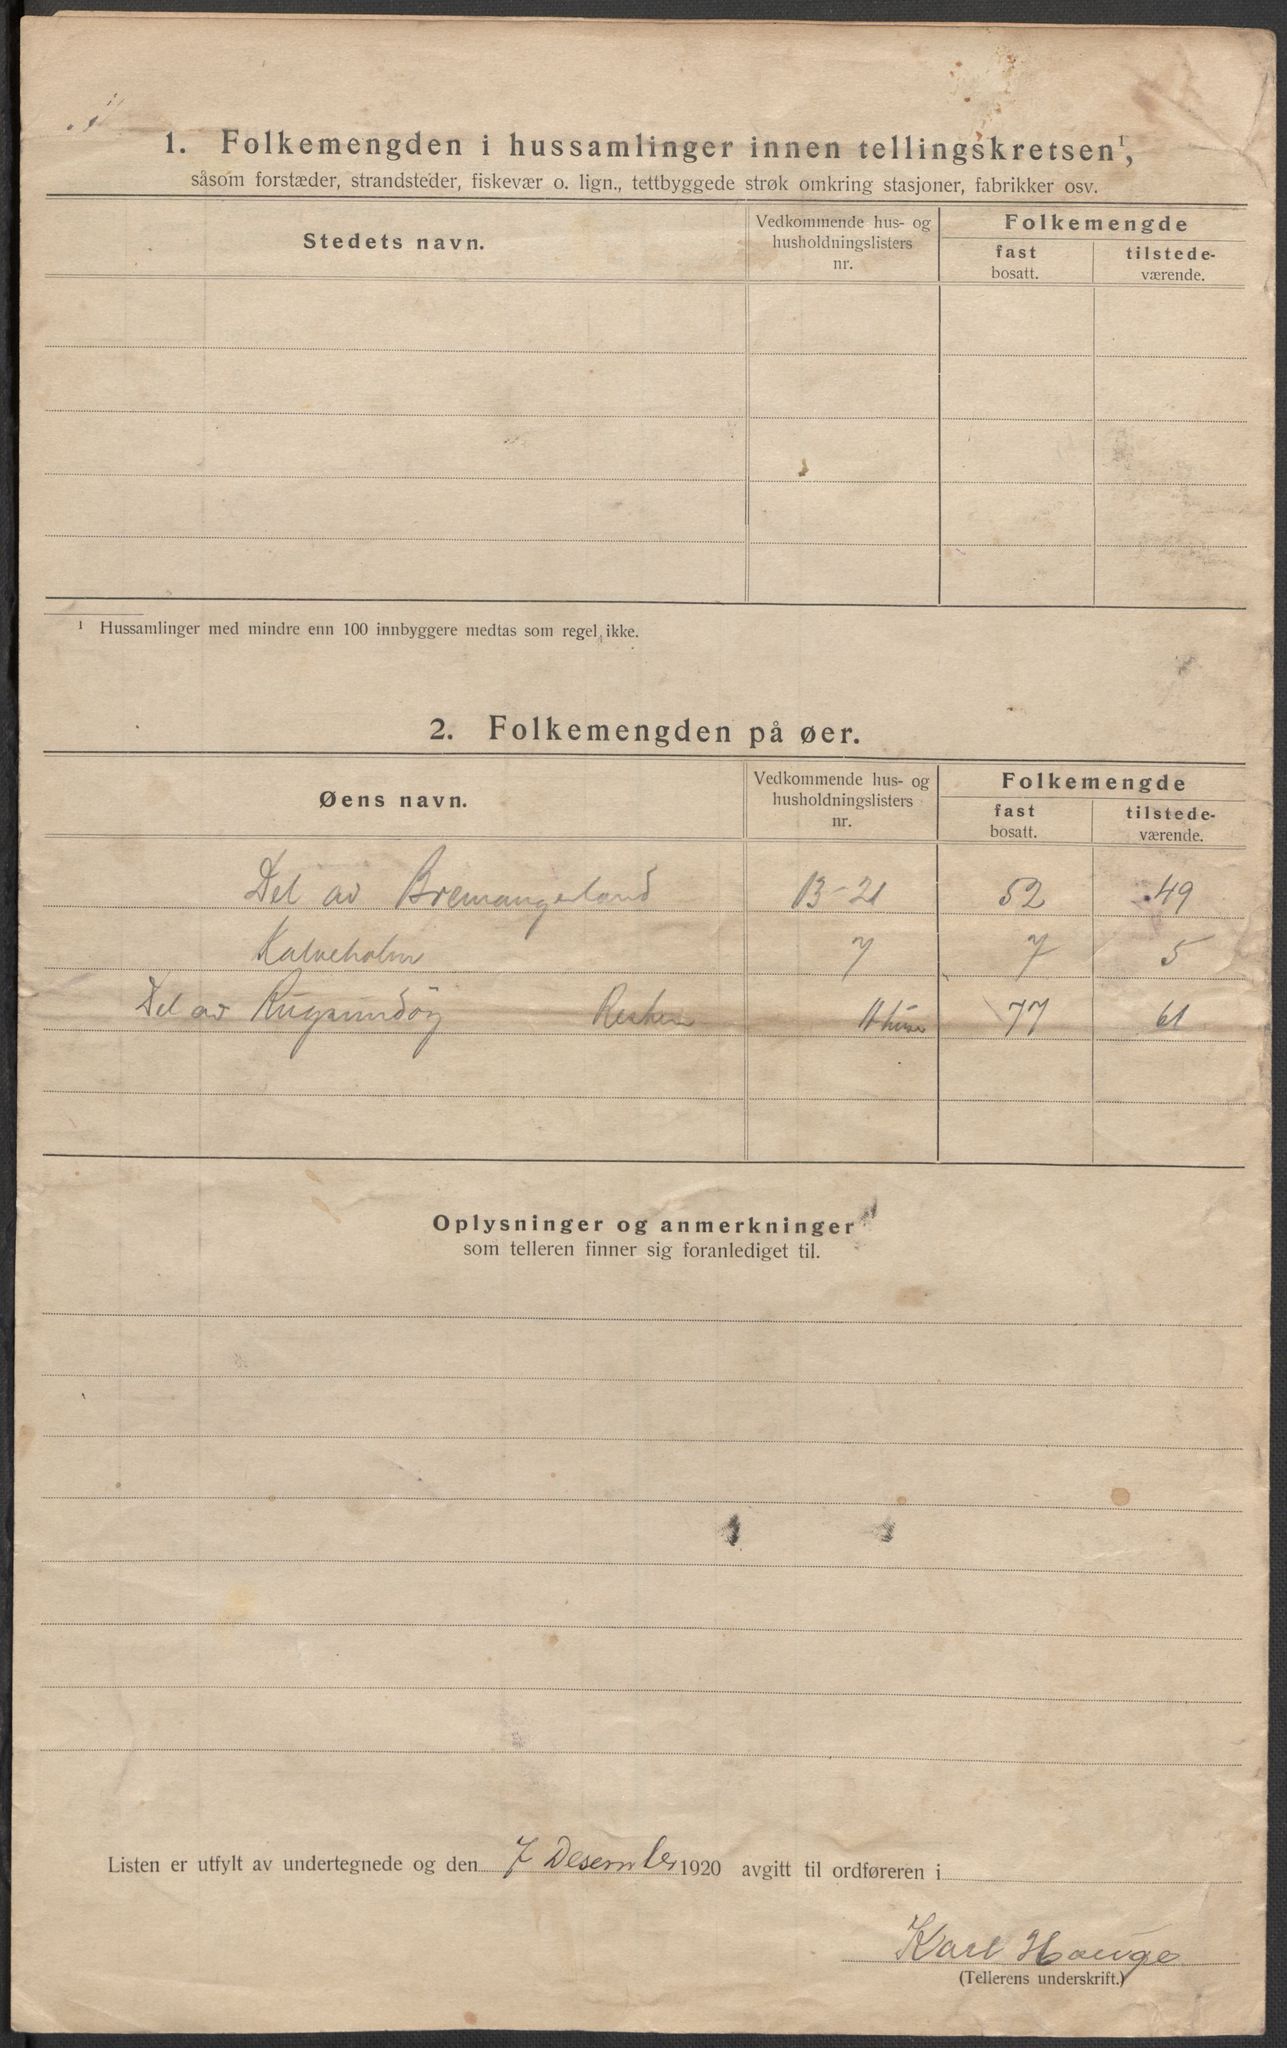 1. Folkemengden i hussamlinger innen tellingskretsen¹,
såsom forstæder, strandsteder, fiskevær o. lign., tettbyggede strøk omkring stasjoner, fabrikker osv.
Stedets navn.
Vedkommende hus- og
husholdningslisters
nr.
Folkemengde
fast
bosatt.
tilstede-
værende.
¹ Hussamlinger med mindre enn 100 innbyggere medtas som regel ikke.
2. Folkemengden på øer.
Øens navn.
Vedkommende hus- og
husholdningslisters
nr.
Folkemengde
fast
bosatt.
tilstede-
værende.
Del av Bremangerland 13-21 52 49
Kalveholm 7 7 5
Del av Rugsundöy Resten 77 61
Oplysninger og anmerkninger
som telleren finner sig foranlediget til.
Listen er utfylt av undertegnede og den 7 Desember 1920 avgitt til ordføreren i
Karl Hauge
(Tellerens underskrift.)